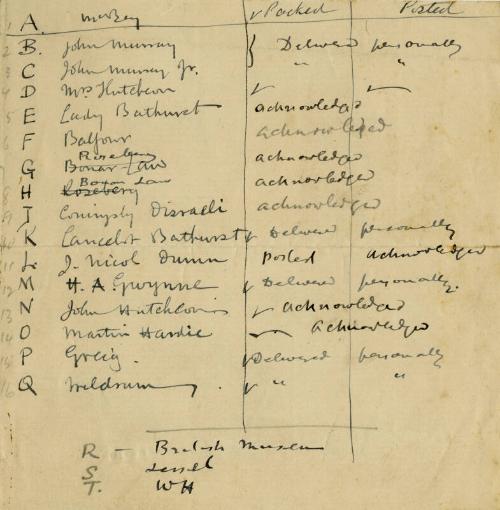 1 A. ✓ Packed Posted
2 B. John Murray } Delivered personally
3 C John Murray Jr. " "
4 D Mrs Hutcheon ✓
5 E Lady Bathurst acknowledged
6 F Balfour acknowledged
Rosebery
7 G Bonar Law acknowledged
Bonar Law
8 H Rosebery acknowledged
9 J Coningsby Disraeli acknowledged
10 K Lancelot Bathurst ✓ Delivered personally
11 L J. Nicol Dunn Posted acknowledged
12 M H. A Gwynne ✓ Delivered personally.
13 N John Hutcheon ✓ acknowledged
14 O Martin Hardie acknowledged
15 P Greig. ✓ Delivered personally
16 Q Meldrum. ✓ " "
R — British Museum
S
T. WH